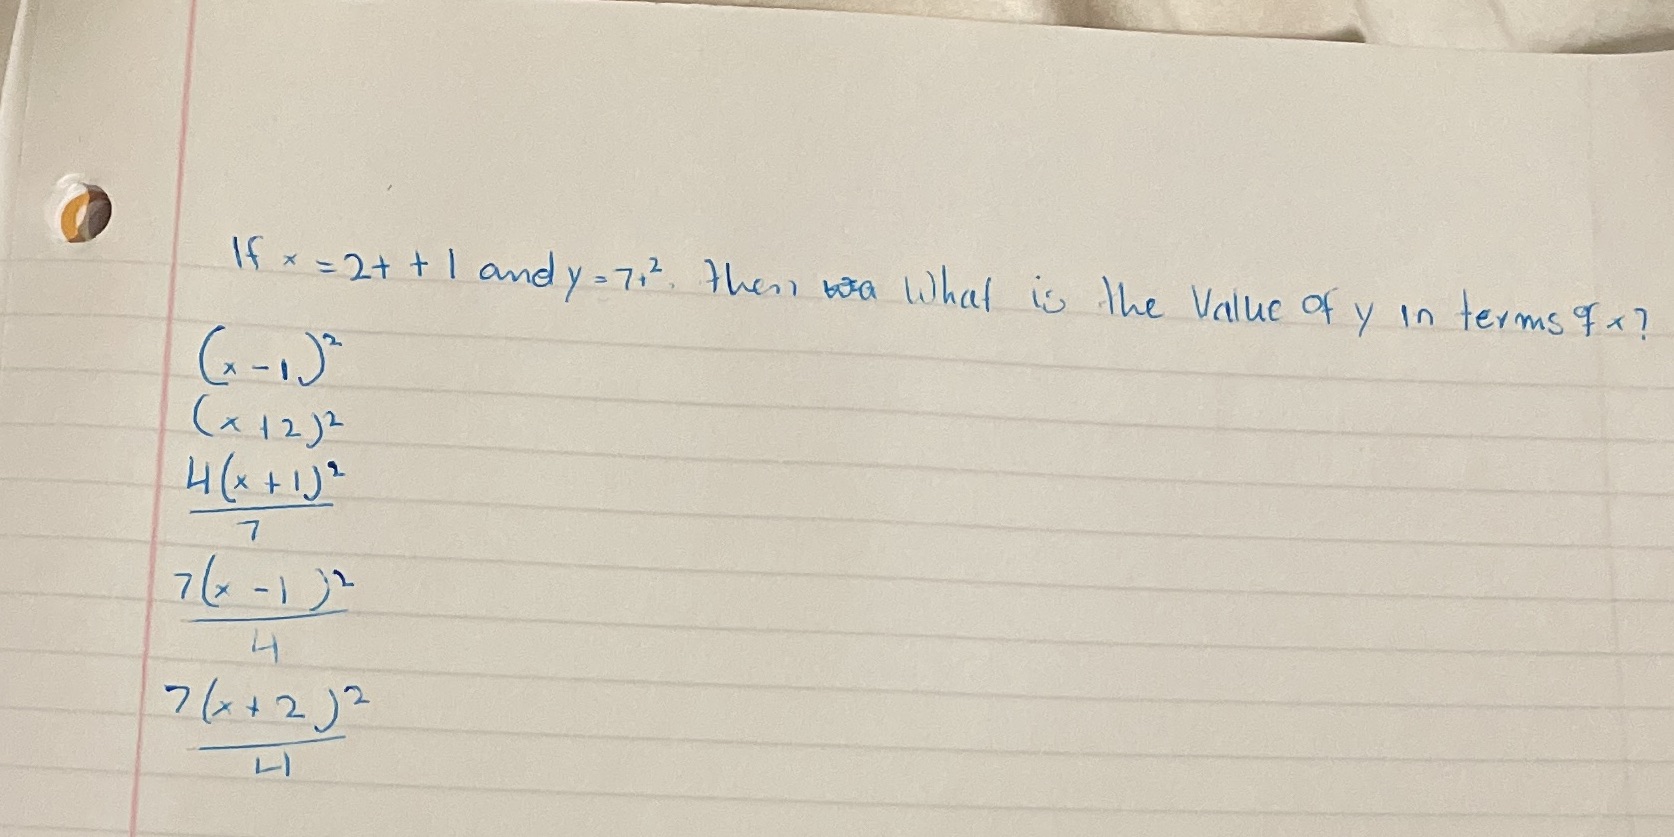 If x = 2t + 1 and y = 7t². then What is the Value of y in terms of x?
(x - 1)²
(x + 2)²
4(x + 1)²
7
7(x - 1)²
4
7(x + 2)²
4